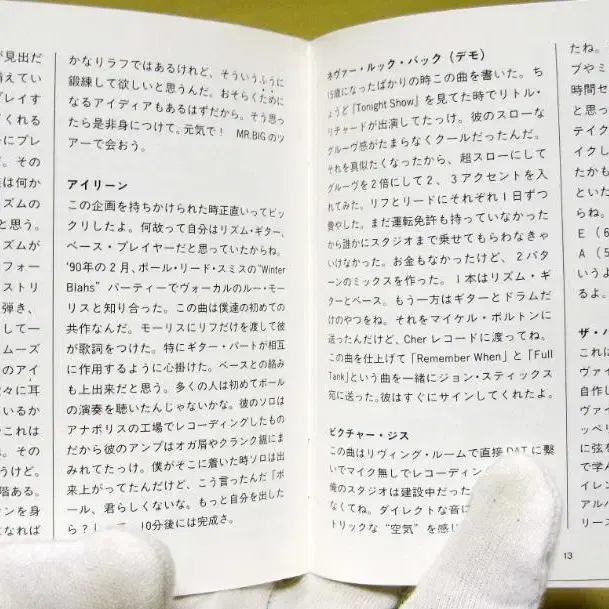 が見出だ
備えてい
プレイす
くれる
にプレ
。その
は何か
ズムの
と思う。
ズムが
フォー
ストリ
弾き、
して一
ムーズ
のアイ
々に耳
いるか
これは
。その
うけど。
階ある。
ンを身
なれば
かなりラフではあるけれど、そういうふうに
鍛練して欲しいと思うんだ。おそらくために
なるアイディアもあるはずだから。そう思っ
たら是非身につけて。元気で! MR.BIGのツ
アーで会おう。
アイリーン
この企画を持ちかけられた時正直いってビッ
クリしたよ。何故って自分はリズム・ギター、
ベース・プレイヤーだと思っていたからね。
'90年の2月、ポール・リード・スミスの"Winter
Blahs" パーティーでヴォーカルのルー・モー
リスと知り合った。この曲は僕達の初めての
共作なんだ。モーリスにリフだけを渡して彼
が歌詞をつけた。特にギター・パートが相互
に作用するように心掛けた。ベースとの絡み
も上出来だと思う。多くの人は初めてポール
の演奏を聴いたんじゃないかな。彼のソロは
アナポリスの工場でレコーディングしたもの
だから彼のアンプはオガ屑やクランク鋸にま
みれてたっけ。僕がそこに着いた時ソロは出
来上がってたんだけど、こう言ったんだ「ポ
ール、君らしくないな。もっと自分を出した
ら?」 10分後には完成さ。
ネヴァー・ルック・バック (デモ)
15歳になったばかりの時この曲を書いた。ち
ょうど『Tonight Show』を見てた時でリトル・
リチャードが出演してたっけ。彼のスローな
グルーヴ感がたまらなくクールだったんだ。
それを真似たくなったから、超スローにして
グルーヴを2倍にして2、3アクセントを入
れてみた。リフとリードにそれぞれ1日ずつ
費やした。まだ運転免許も持っていなかった
から誰かにスタジオまで乗せてもらわなきゃ
いけなかった。お金もなかったけど、2パタ
ーンのミックスを作った。1本はリズム・ギ
ターとベース。もう一方はギターとドラムだ
けのやつをね。それをマイケル・ボルトンに
送ったんだけど、Cher レコードに渡ってね。
この曲を仕上げて「Remember When」と「Full
Tank」という曲を一緒にジョン・スティックス
宛に送った。彼はすぐにサインしてくれたよ。
ピクチャー・ジス
この曲はリヴィング・ルームで直接DATに繫
いでマイク無しでレコーディン
俺のスタジオは建設中だった
なくてね。ダイレクトな音に
トリックな "空気" を感じ
たね。
プやミ
時間セ
と思っ
ティク
イクし
たかも
といた
ね。
E (6
A (5
いうよ
るよ。
ザ・ハ
これは
ヴァイ
自作し
ヴァイ
ッペリ
に弦を
で学ん
イレン
アルバ
リース
13